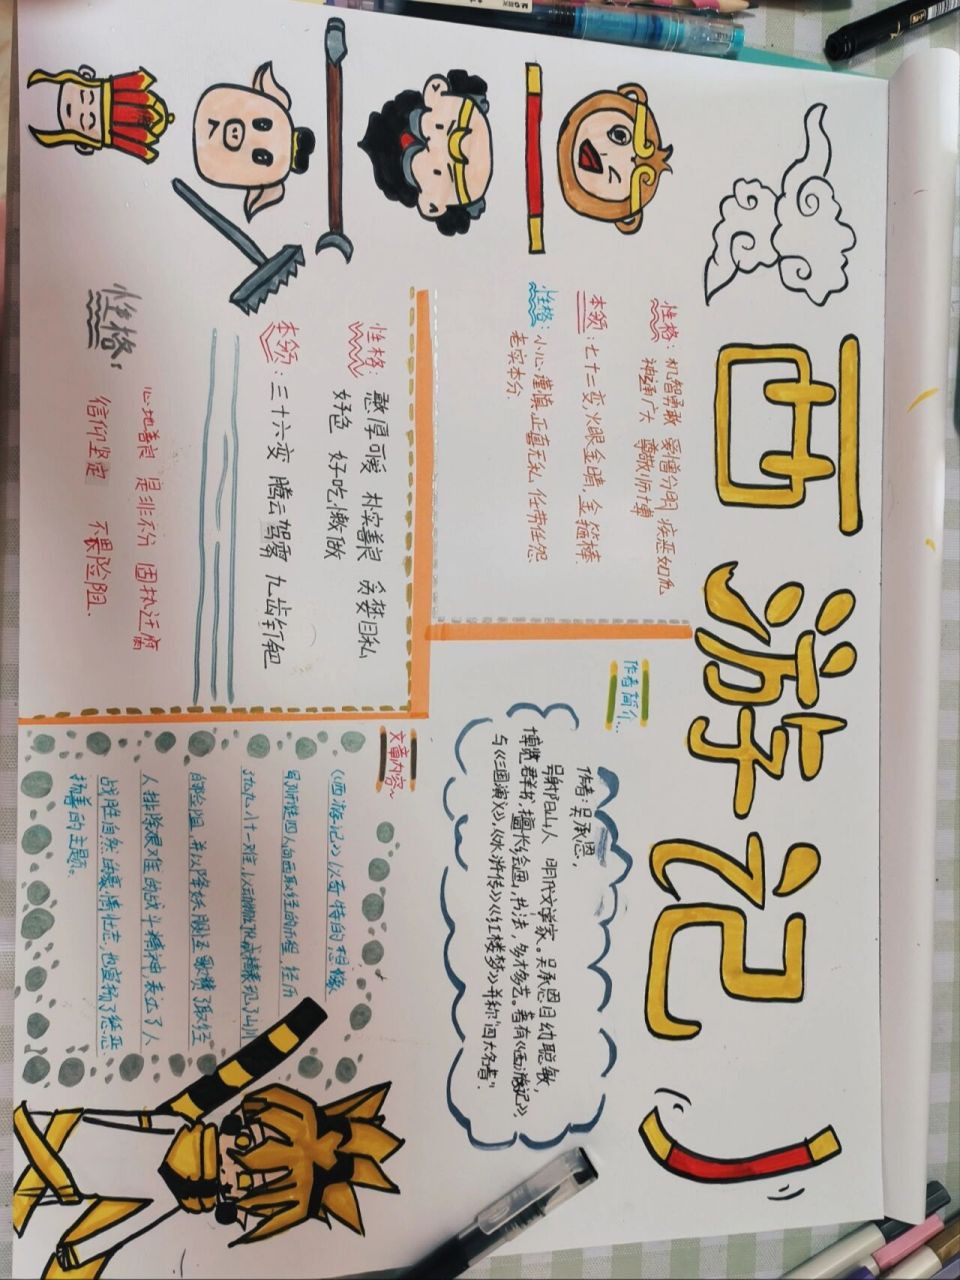 西游记
性格：机智勇敢 爱憎分明 疾恶如仇
神通广大 尊敬师博
本领：七十三变，火眼金睛，金箍棒
性格：小心谨慎，正直无私，任劳任怨
老实本分
性格：憨厚可爱 朴实善良 贪婪自私
好色 好吃懒做
本领：三十六变 腾云驾雾 九齿钉钯
性格：
心地善良 是非不分 固执迂腐
信仰坚定 不畏险阻.
作者简介...
作者：吴承恩，
号射阳山人 明代文学家。吴承恩自幼聪敏，
博览群书，擅长绘画，书法，多才多艺。著有《西游记》，
与《三国演义》，《水浒传》《红楼梦》并称"四大名著".
文章内容~
《西游记》以奇特的想像
写师徒四人向西取经的历程，经历
了九九八十一难，以
的险阻，并以降妖服怪歌赞了取经
人排除艰难的战斗精神，表达了人
战胜自然的豪情壮志，也宣扬了惩恶
扬善的主题。